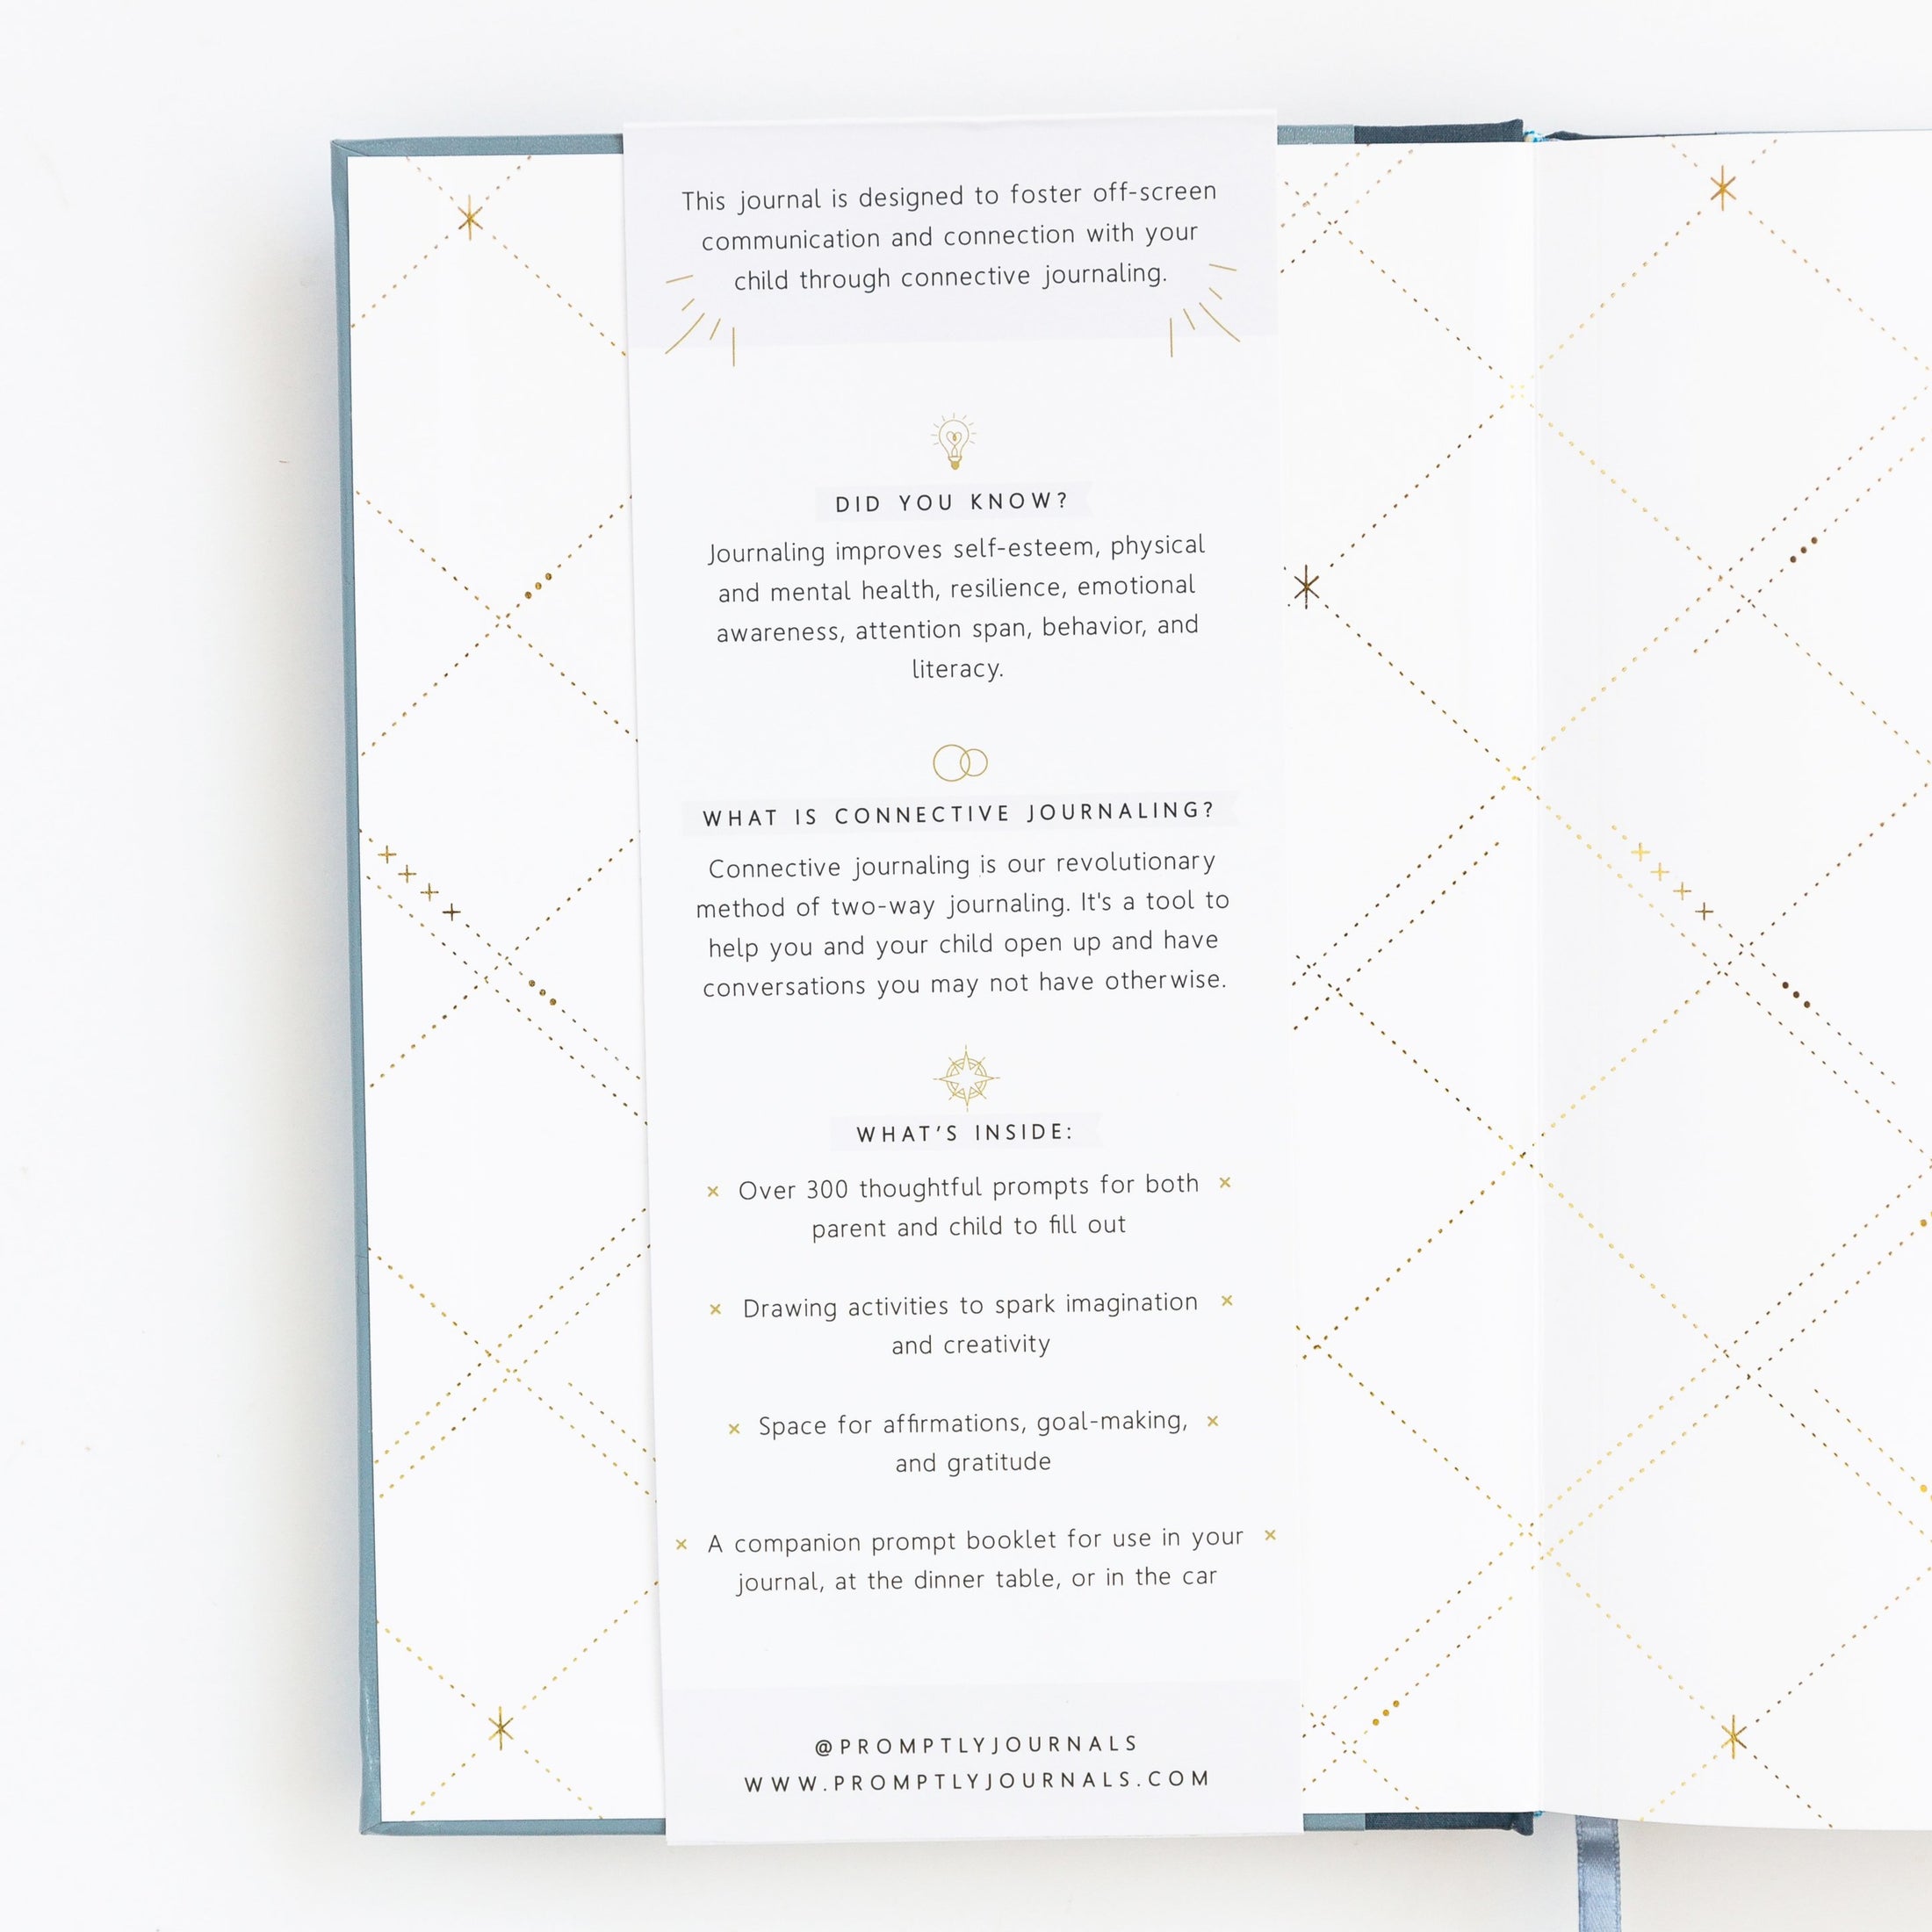 This journal is designed to foster off-screen
communication and connection with your
child through connective journaling.
DID YOU KNOW?
Journaling improves self-esteem, physical
and mental health, resilience, emotional
awareness, attention span, behavior, and
literacy.
WHAT IS CONNECTIVE JOURNALING?
Connective journaling is our revolutionary
method of two-way journaling. It's a tool to
help you and your child open up and have
conversations you may not have otherwise.
WHAT'S INSIDE:
× Over 300 thoughtful prompts for both ×
parent and child to fill out
× Drawing activities to spark imagination ×
and creativity
× Space for affirmations, goal-making, ×
and gratitude
× A companion prompt booklet for use in your ×
journal, at the dinner table, or in the car
@PROMPTLYJOURNALS
WWW.PROMPTLYJOURNALS.COM